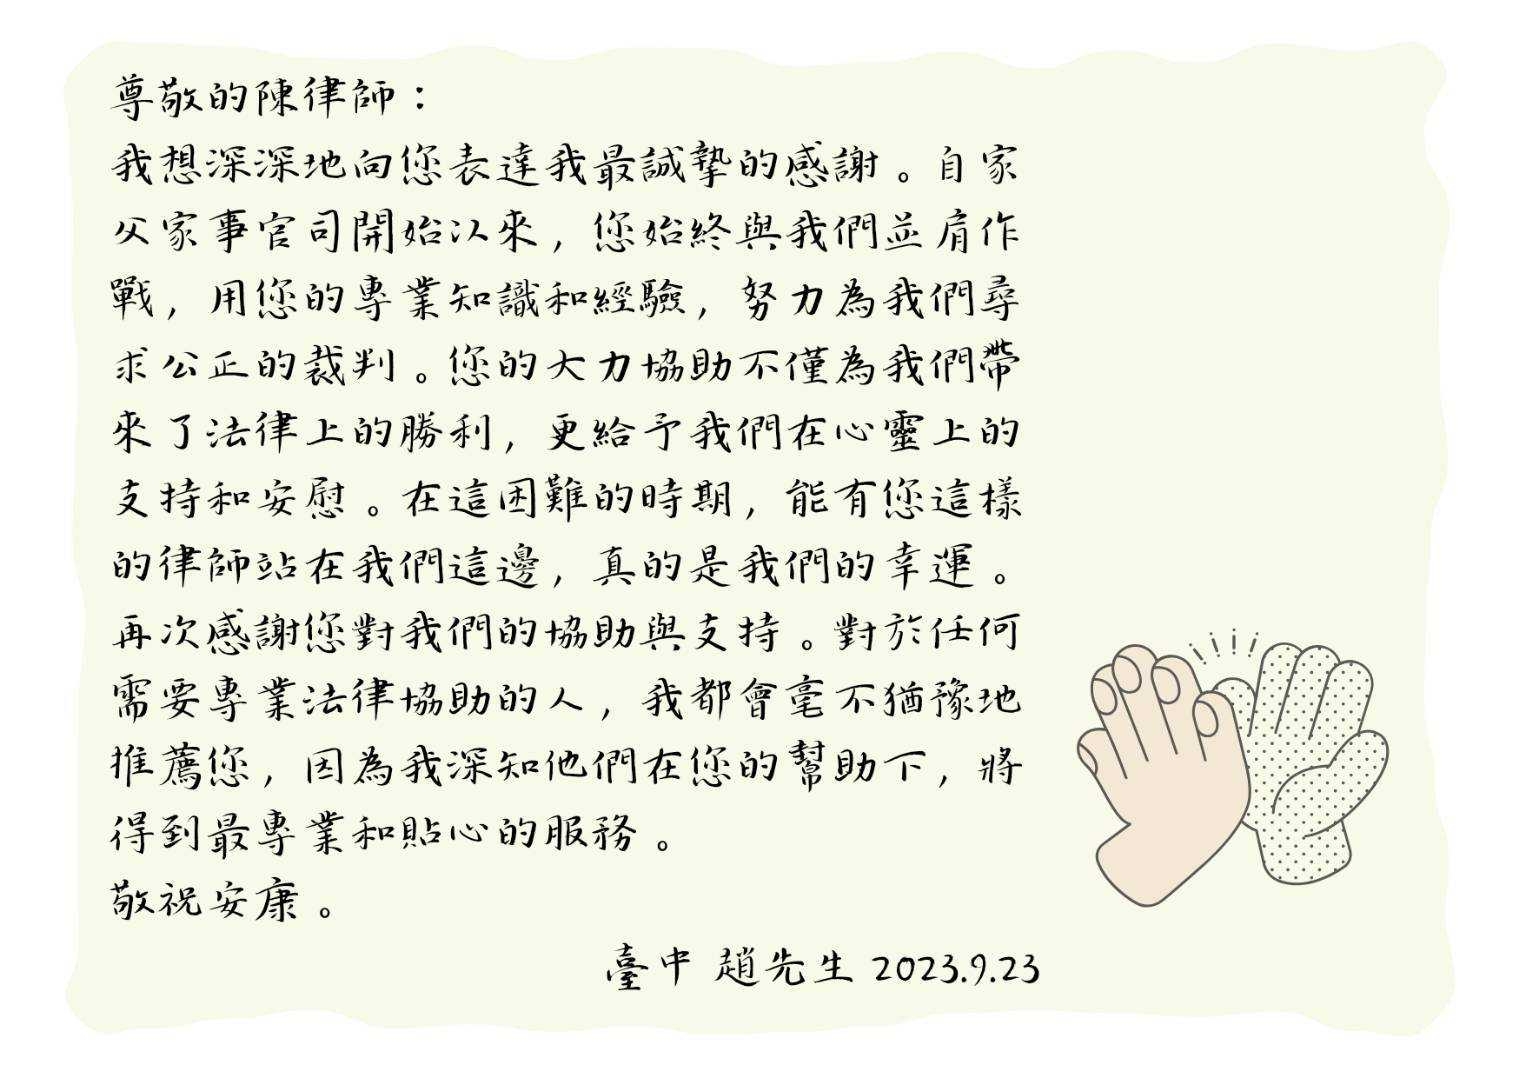 尊敬的陳律師：
我想深深地向您表達我最誠摯的感謝。自家
父家事官司開始以來，您始終與我們並肩作
戰，用您的專業知識和經驗，努力為我們尋
求公正的裁判。您的大力協助不僅為我們帶
來了法律上的勝利，更給予我們在心靈上的
支持和安慰。在這困難的時期，能有您這樣
的律師站在我們這邊，真的是我們的幸運。
再次感謝您對我們的協助與支持。對於任何
需要專業法律協助的人，我都會毫不猶豫地
推薦您，因為我深知他們在您的幫助下，將
得到最專業和貼心的服務。
敬祝安康。
臺中 趙先生 2023.9.23